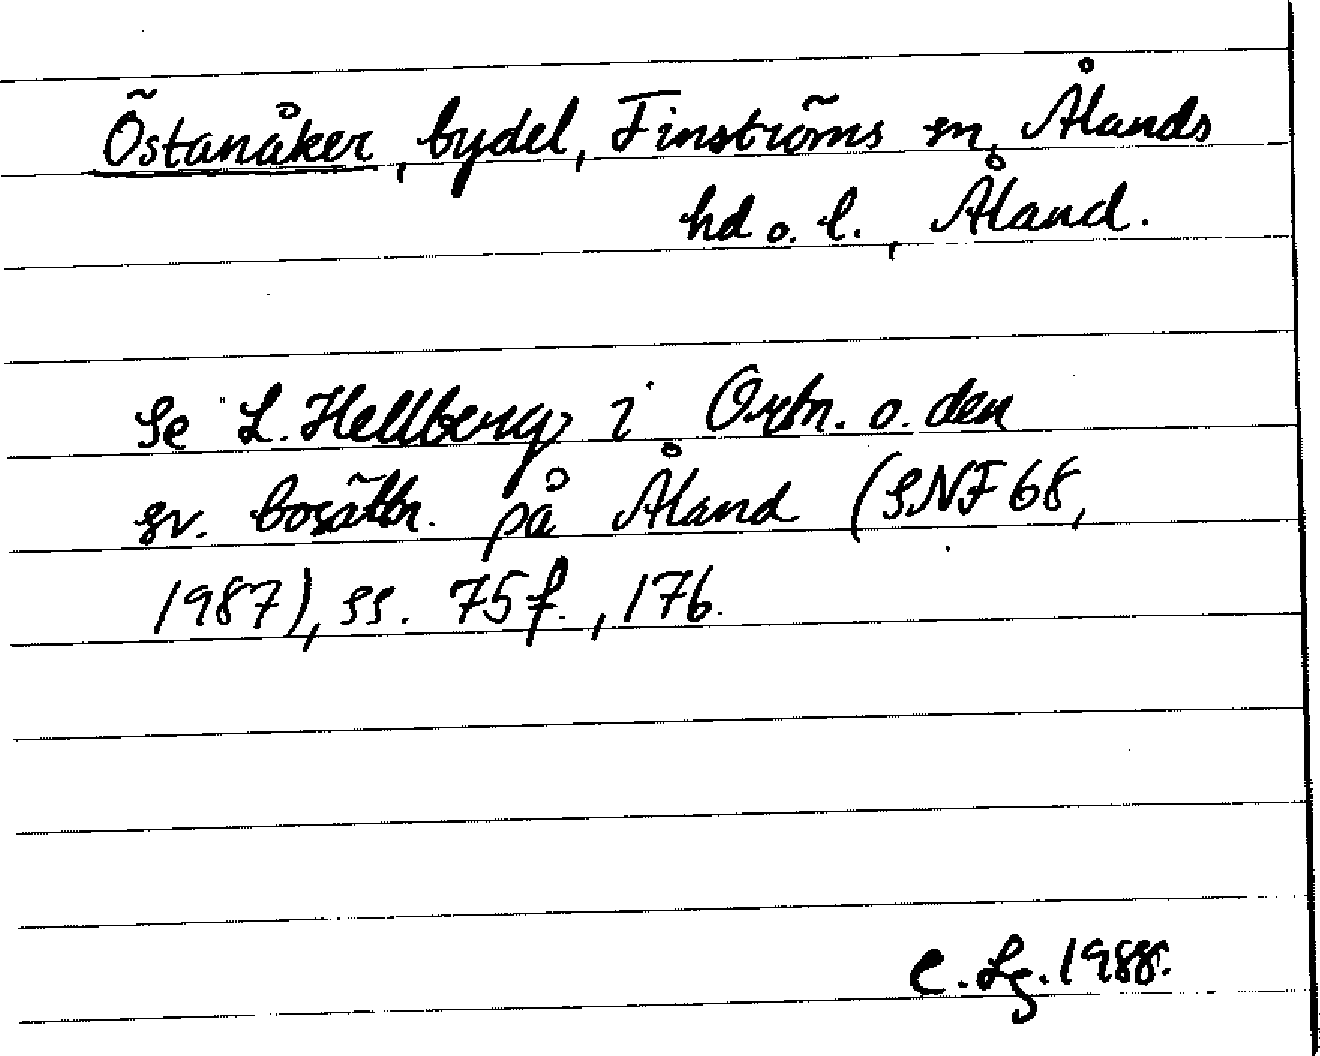 Östanåker, bydel, Finströms sn, Ålands
hd o. l., Åland.
Se L. Hellberg i Ortn. o. den
sv. bosättn. på Åland (SNF 68,
1987), ss. 75f., 176.
C. Lg. 1988.